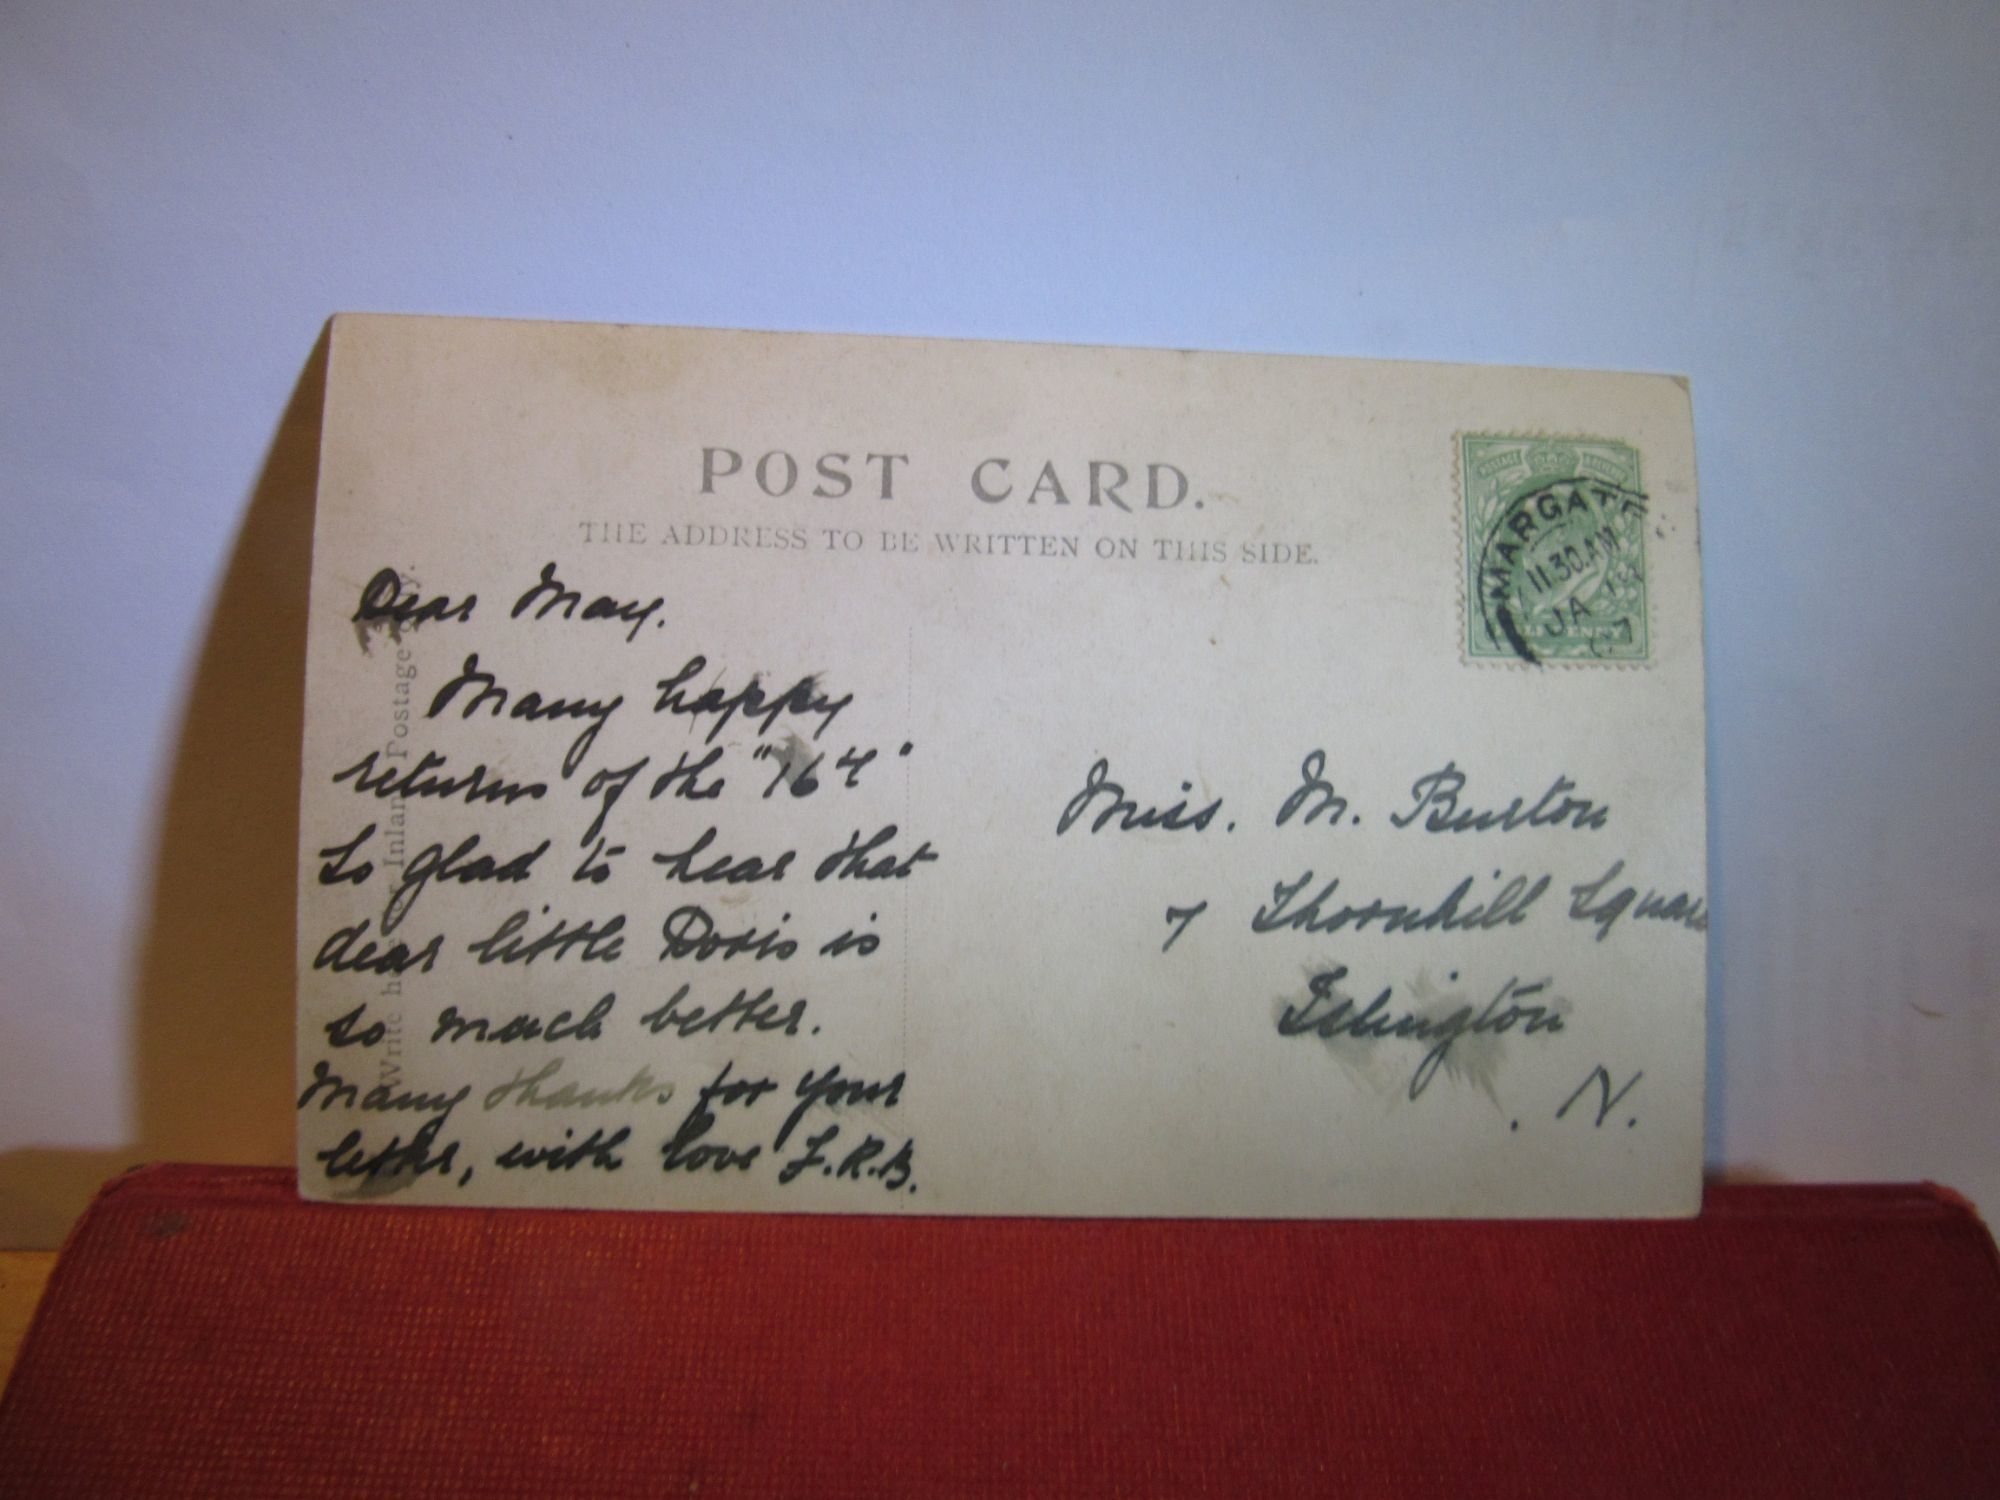 POST CARD.
THE ADDRESS TO BE WRITTEN ON THIS SIDE.
Write here for Inland Postage only.
Dear May.
Many happy
returns of the "16th"
So glad to hear that
dear little Doris is
so much better.
Many thanks for your
letter, with love F.R.B.
POSTAGE REVENUE
HALFPENNY
MARGATE
11.30.AM
JA 18
7
Miss. M. Burton
7 Thornhill Square
Islington
. N.